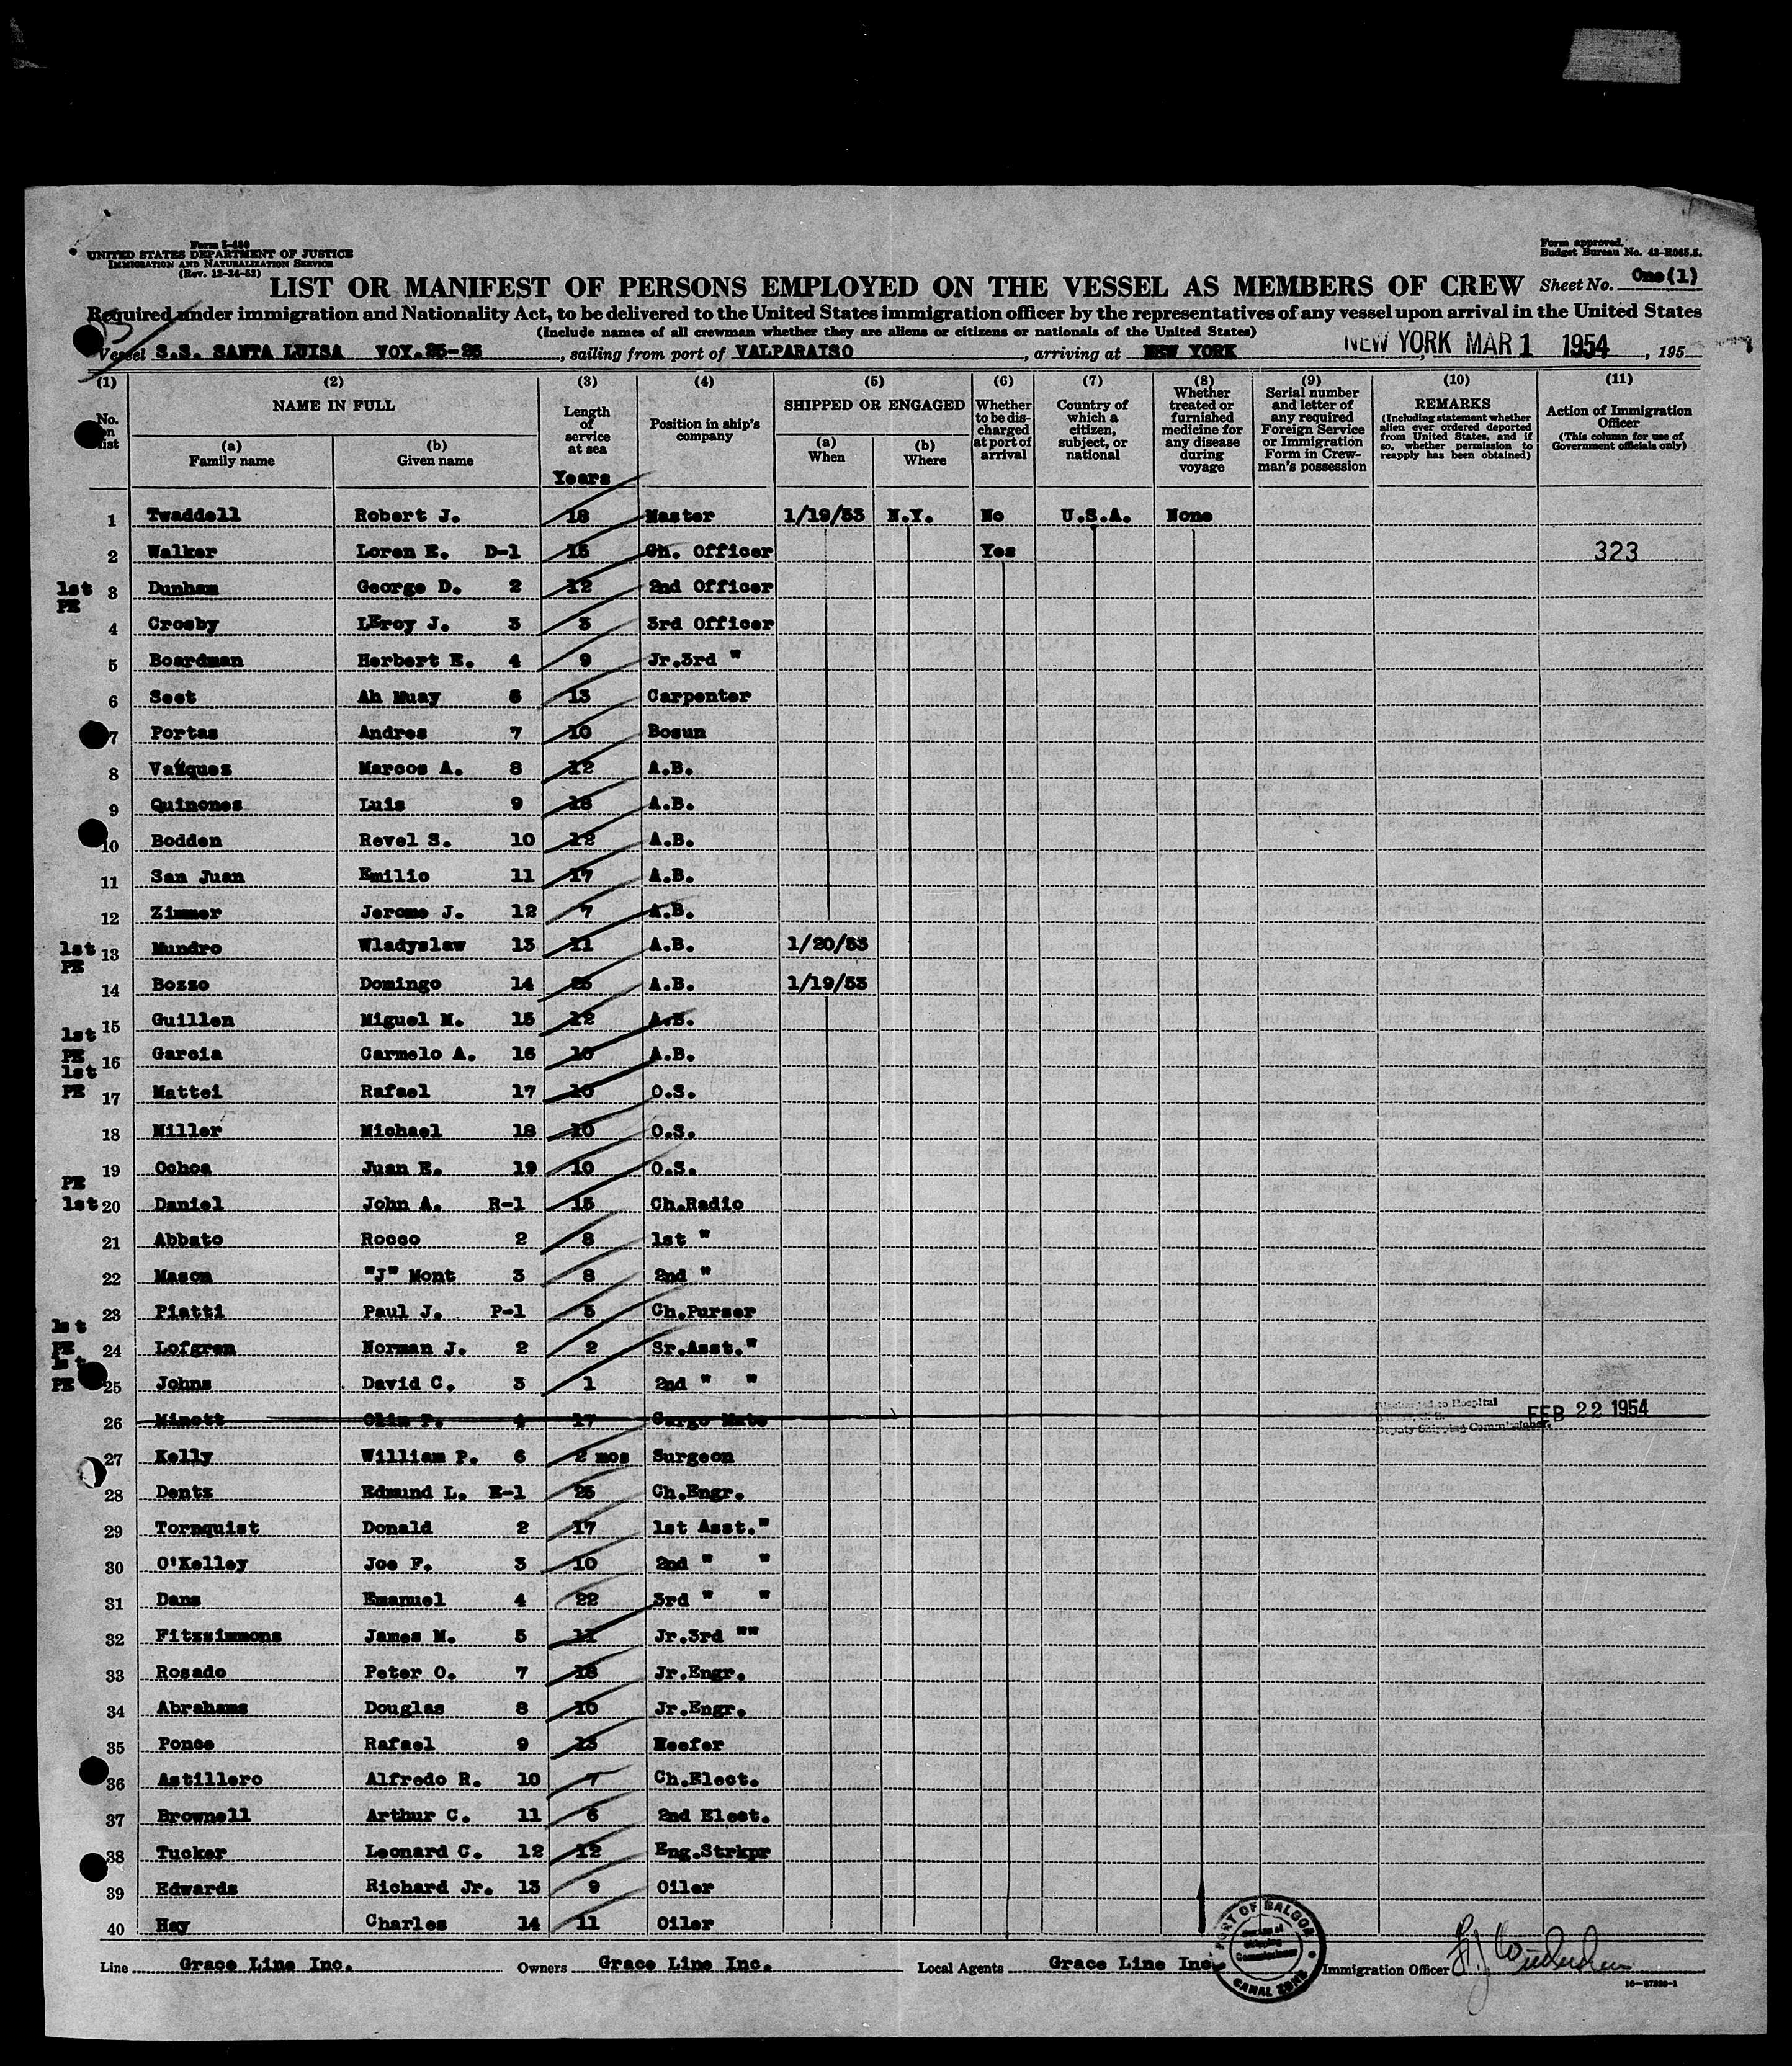 Form I-480
UNITED STATES DEPARTMENT OF JUSTICE
IMMIGRATION AND NATURALIZATION SERVICE
(Rev. 12-24-52)
Form approved.
Budget Bureau No. 43-R065.5.
LIST OR MANIFEST OF PERSONS EMPLOYED ON THE VESSEL AS MEMBERS OF CREW Sheet No. One(1)
Required under immigration and Nationality Act, to be delivered to the United States immigration officer by the representatives of any vessel upon arrival in the United States
(Include names of all crewman whether they are aliens or citizens or nationals of the United States)
Vessel S.S. SANTA LUISA VOY.25-26, sailing from port of VALPARAISO, arriving at NEW YORK NEW YORK MAR 1 1954, 195
(1) (2) (3) (4) (5) (6) (7) (8) (9) (10) (11)
No. on list
NAME IN FULL
(a) Family name
(b) Given name
Length of service at sea
Years
Position in ship's company
SHIPPED OR ENGAGED
(a) When
(b) Where
Whether to be discharged at port of arrival
Country of which a citizen, subject, or national
Whether treated or furnished medicine for any disease during voyage
Serial number and letter of any required Foreign Service or Immigration Form in Crewman's possession
REMARKS
(Including statement whether alien ever ordered deported from United States, and if so, whether permission to reapply has been obtained)
Action of Immigration Officer
(This column for use of Government officials only)
1 Twaddell Robert J. 18 Master 1/19/53 N.Y. No U.S.A. None
2 Walker Loren E. D-1 15 Ch. Officer Yes 323
1st PE 3 Dunham George D. 2 12 2nd Officer
4 Crosby LEroy J. 3 3 3rd Officer
5 Boardman Herbert E. 4 9 Jr.3rd "
6 Seet Ah Muay 5 13 Carpenter
7 Portas Andres 7 10 Bosun
8 Vazquez Marcos A. 8 12 A.B.
9 Quinones Luis 9 18 A.B.
10 Bodden Revel S. 10 12 A.B.
11 San Juan Emilio 11 17 A.B.
12 Zimmer Jerome J. 12 7 A.B.
1st PE 13 Mundro Wladyslaw 13 11 A.B. 1/20/53
14 Bozzo Domingo 14 25 A.B. 1/19/53
15 Guillen Miguel M. 15 12 A.B.
1st PE 16 Garcia Carmelo A. 16 10 A.B.
1st PE 17 Mattei Rafael 17 10 O.S.
18 Miller Michael 18 10 O.S.
19 Ochoa Juan E. 19 10 O.S.
PE 1st 20 Daniel John A. R-1 15 Ch.Radio
21 Abbato Rocco 2 8 1st "
22 Mason "J" Mont 3 8 2nd "
23 Piatti Paul J. P-1 5 Ch.Purser
1st PE 24 Lofgren Norman J. 2 2 Sr.Asst."
1st PE 25 Johns David C. 3 1 2nd " "
26 Minott Olin P. 4 17 Cargo Mate Discharged to Hospital Deputy Shipping Commissioner. FEB 22 1954
27 Kelly William P. 6 2 mos Surgeon
28 Dentz Edmund L. E-1 25 Ch.Engr.
29 Tornquist Donald 2 17 1st Asst."
30 O'Kelley Joe F. 3 10 2nd " "
31 Dans Emanuel 4 22 3rd " "
32 Fitzsimmons James M. 5 11 Jr.3rd ""
33 Rosado Peter O. 7 18 Jr.Engr.
34 Abrahams Douglas 8 10 Jr.Engr.
35 Ponce Rafael 9 13 Reefer
36 Astillero Alfredo R. 10 7 Ch.Elect.
37 Brownell Arthur C. 11 6 2nd Elect.
38 Tucker Leonard C. 12 12 Eng.Strkpr
39 Edwards Richard Jr. 13 9 Oiler
40 Hay Charles 14 11 Oiler
Line Grace Line Inc. Owners Grace Line Inc. Local Agents Grace Line Inc. Immigration Officer
PORT OF BALBOA
Shipping Commissioner
CANAL ZONE